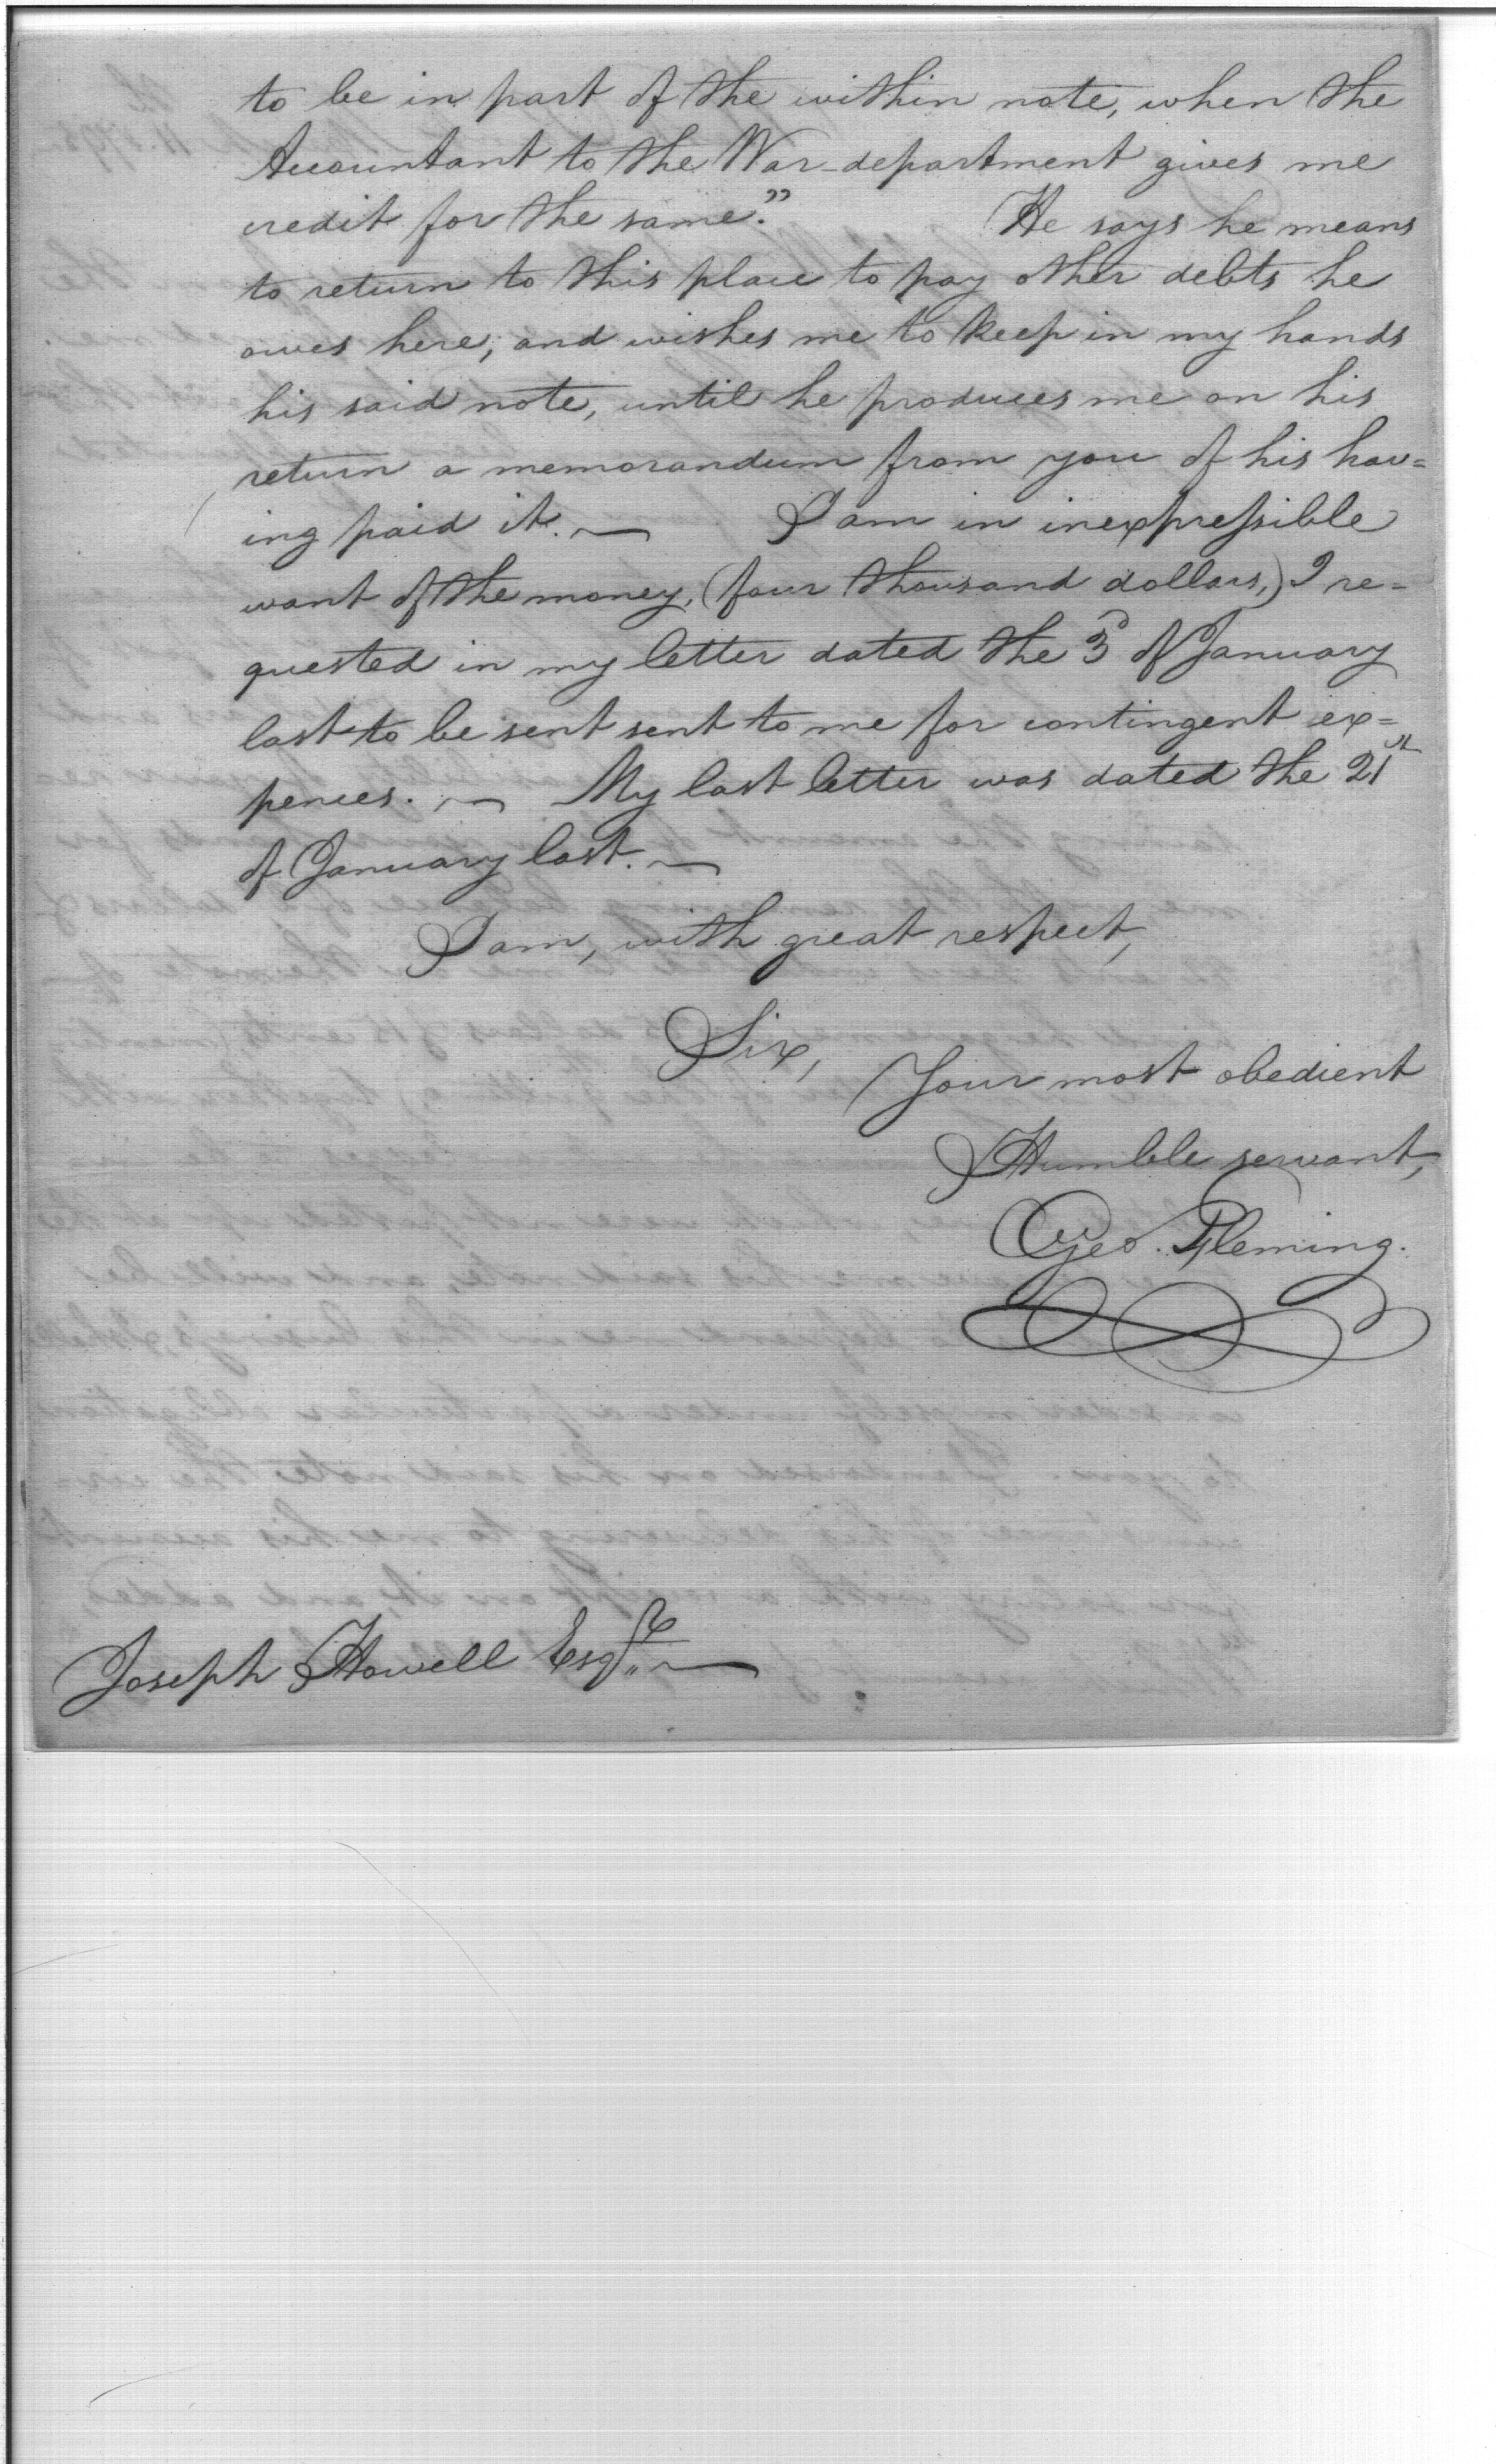 to be in part of the within note, when the
Accountant to the War-department gives me
credit for the same." He says he means
to return to this place to pay other debts he
owes here; and wishes me to keep in my hands
his said note, until he produces me on his
return a memorandum from you of his hav=
ing paid it. — I am in inexpressible
want of the money, (four thousand dollars,) I re=
quested in my letter dated the 3d of January
last to be sent sent to me for contingent ex=
pences. — My last letter was dated the 21st
of January last. —
I am, with great respect,
Sir,
Your most obedient
Humble servant,
Geo. Fleming.
Joseph Howell Esqr. —